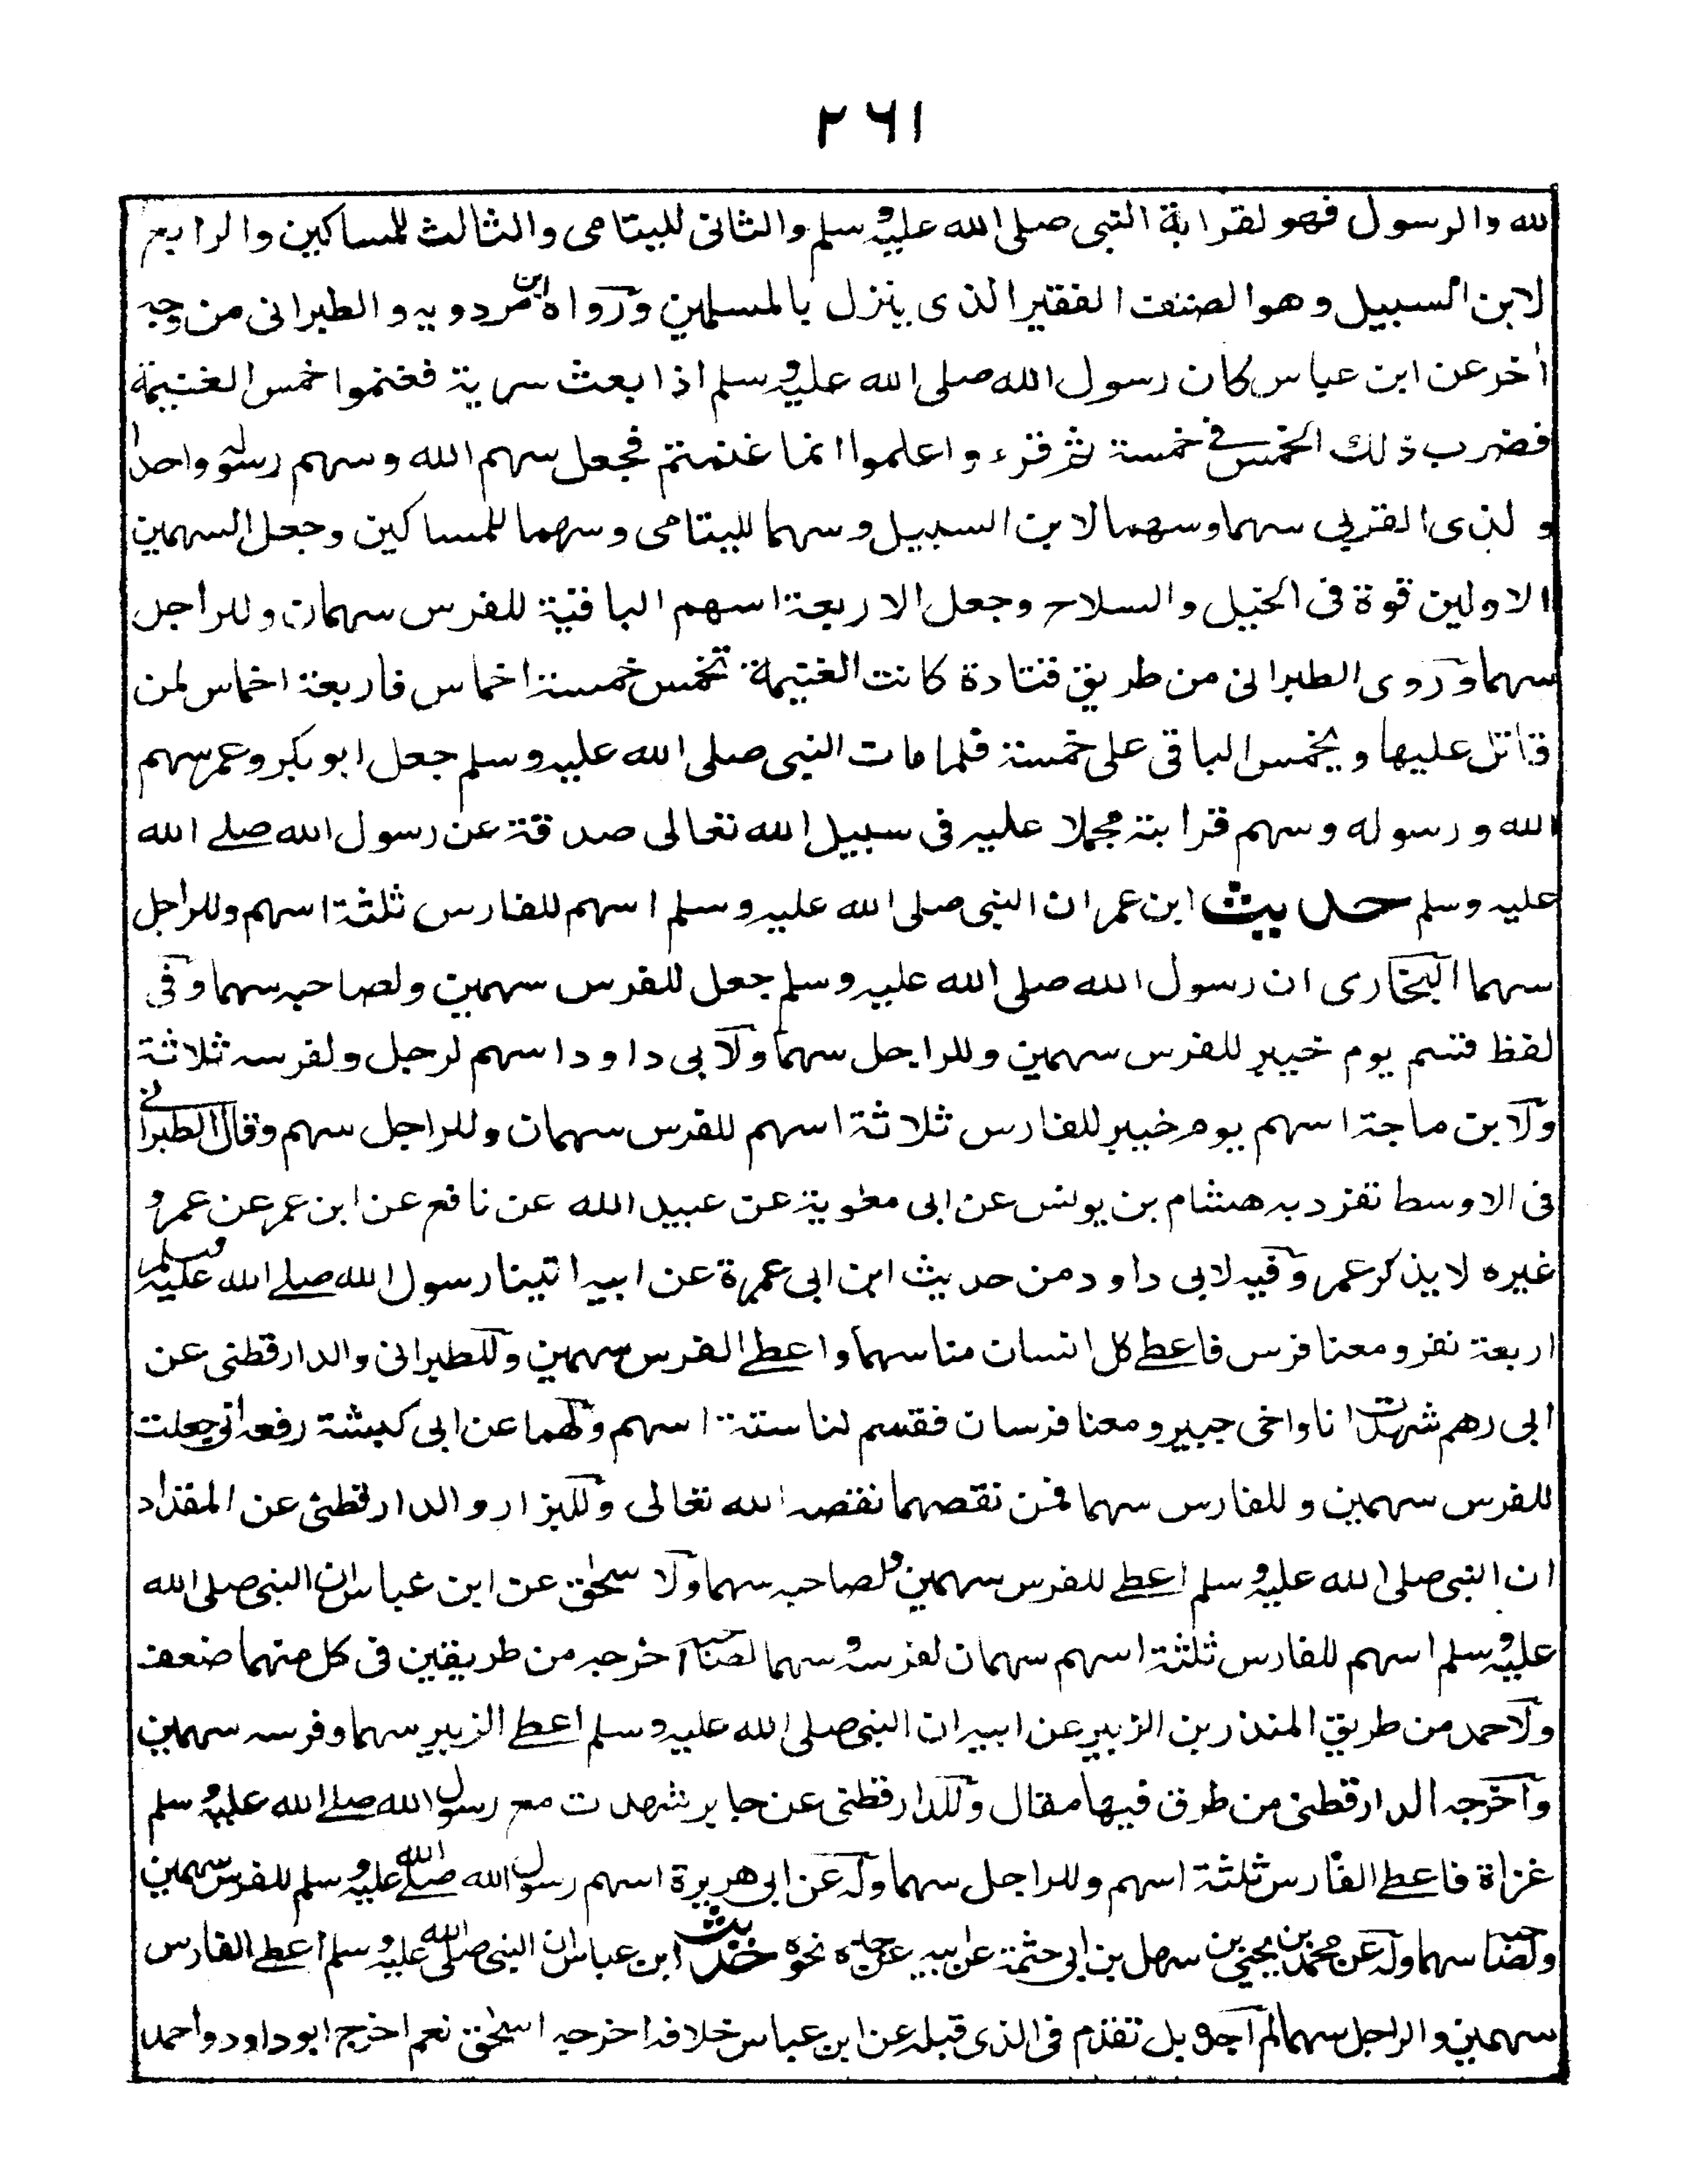 ٢٦١
لله والرسول فهو لقرابة النبى صلى الله عليه وسلم والثانى لليتامى والثالث للمساكين والرابع
لابن السبيل وهو الضعيف الفقير الذى ينزل بالمسلمين ورواه ابن مردويه والطبرانى من وجه
اخر عن ابن عباس كان رسول الله صلى الله عليه وسلم اذا بعث سرية فغنموا خمس الغنيمة
فضرب ذلك الخمس فى خمسة ثم قرء واعلموا انما غنمتم فجعل سهم الله وسهم رسوله واحدا
ولذى القربى سهما وسهما لابن السبيل وسهما لليتامى وسهما للمساكين وجعل السهمين
الاولين قوة فى الخيل والسلاح وجعل الاربعة اسهم الباقية للفرس سهمان وللراجل
سهما وروى الطبرانى من طريق قتادة كانت الغنيمة تخمس خمسة اخماس فاربعة اخماس لمن
قاتل عليها ويخمس الباقى على خمسة فلما مات النبى صلى الله عليه وسلم جعل ابو بكر وعمر سهم
الله ورسوله وسهم قرابته مجملا عليه فى سبيل الله تعالى صدقة عن رسول الله صلے الله
عليه وسلم حديث ابن عمر ان النبى صلى الله عليه وسلم اسهم للفارس ثلثة اسهم وللراجل
سهما البخارى ان رسول الله صلى الله عليه وسلم جعل للفرس سهمين ولصاحبه سهما وفى
لفظ قسم يوم خيبر للفرس سهمين وللراجل سهما ولابى داود اسهم لرجل ولفرسه ثلاثة
ولابن ماجة اسهم يوم خيبر للفارس ثلاثة اسهم للفرس سهمان وللراجل سهم وقال الطبرانے
فى الاوسط تفرد به هشام بن يونس عن ابى معٰوية عن عبيد الله عن نافع عن ابن عمر عن عمر و
غيره لا يذكر عمر وفيه لابى داود من حديث ابن ابى عمرة عن ابيه اتينا رسول الله صلے الله عليه وسلم
اربعة نفر ومعنا فرس فاعطے كل انسان منا سهما واعطے الفرس سهمين وللطبرانى والدارقطنى عن
ابى رهم شهدت انا واخى خيبر ومعنا فرسان فقسم لنا ستة اسهم ولهما عن ابى كبشة رفعه انى جعلت
للفرس سهمين وللفارس سهما فمن نقصهما نقصه الله تعالى وللبزار والدارقطنى عن المقداد
ان النبى صلى الله عليه وسلم اعطے للفرس سهمين ولصاحبه سهما ولا سحٰق عن ابن عباس ان النبى صلى الله
عليه وسلم اسهم للفارس ثلثة اسهم سهمان لفرسه وسهما لصاحبه اخرجه من طريقين فى كل منهما ضعف
ولاحمد من طريق المنذر بن الزبير عن ابيه ان النبى صلى الله عليه وسلم اعطے الزبير سهما وفرسه سهمين
واخرجه الدارقطنى من طرق فيها مقال وللدارقطنى عن جابر شهدت مع رسول الله صلے الله عليه وسلم
غزاة فاعطے الفارس ثلثة اسهم وللراجل سهما وله عن ابى هريرة اسهم رسول الله صلے الله عليه وسلم للفرس سهمين
ولصاحبه سهما وله عن محمد بن يحيى بن سهل بن ابى حثمة عن ابيه عن جده نحوه حديث ابن عباس ان النبى صلى الله عليه وسلم اعطے الفارس
سهمين والراجل سهما لم اجده بل تقدم فى الذى قبله عن ابن عباس خلافه اخرجه اسحٰق نعم اخرج ابو داود واحمد